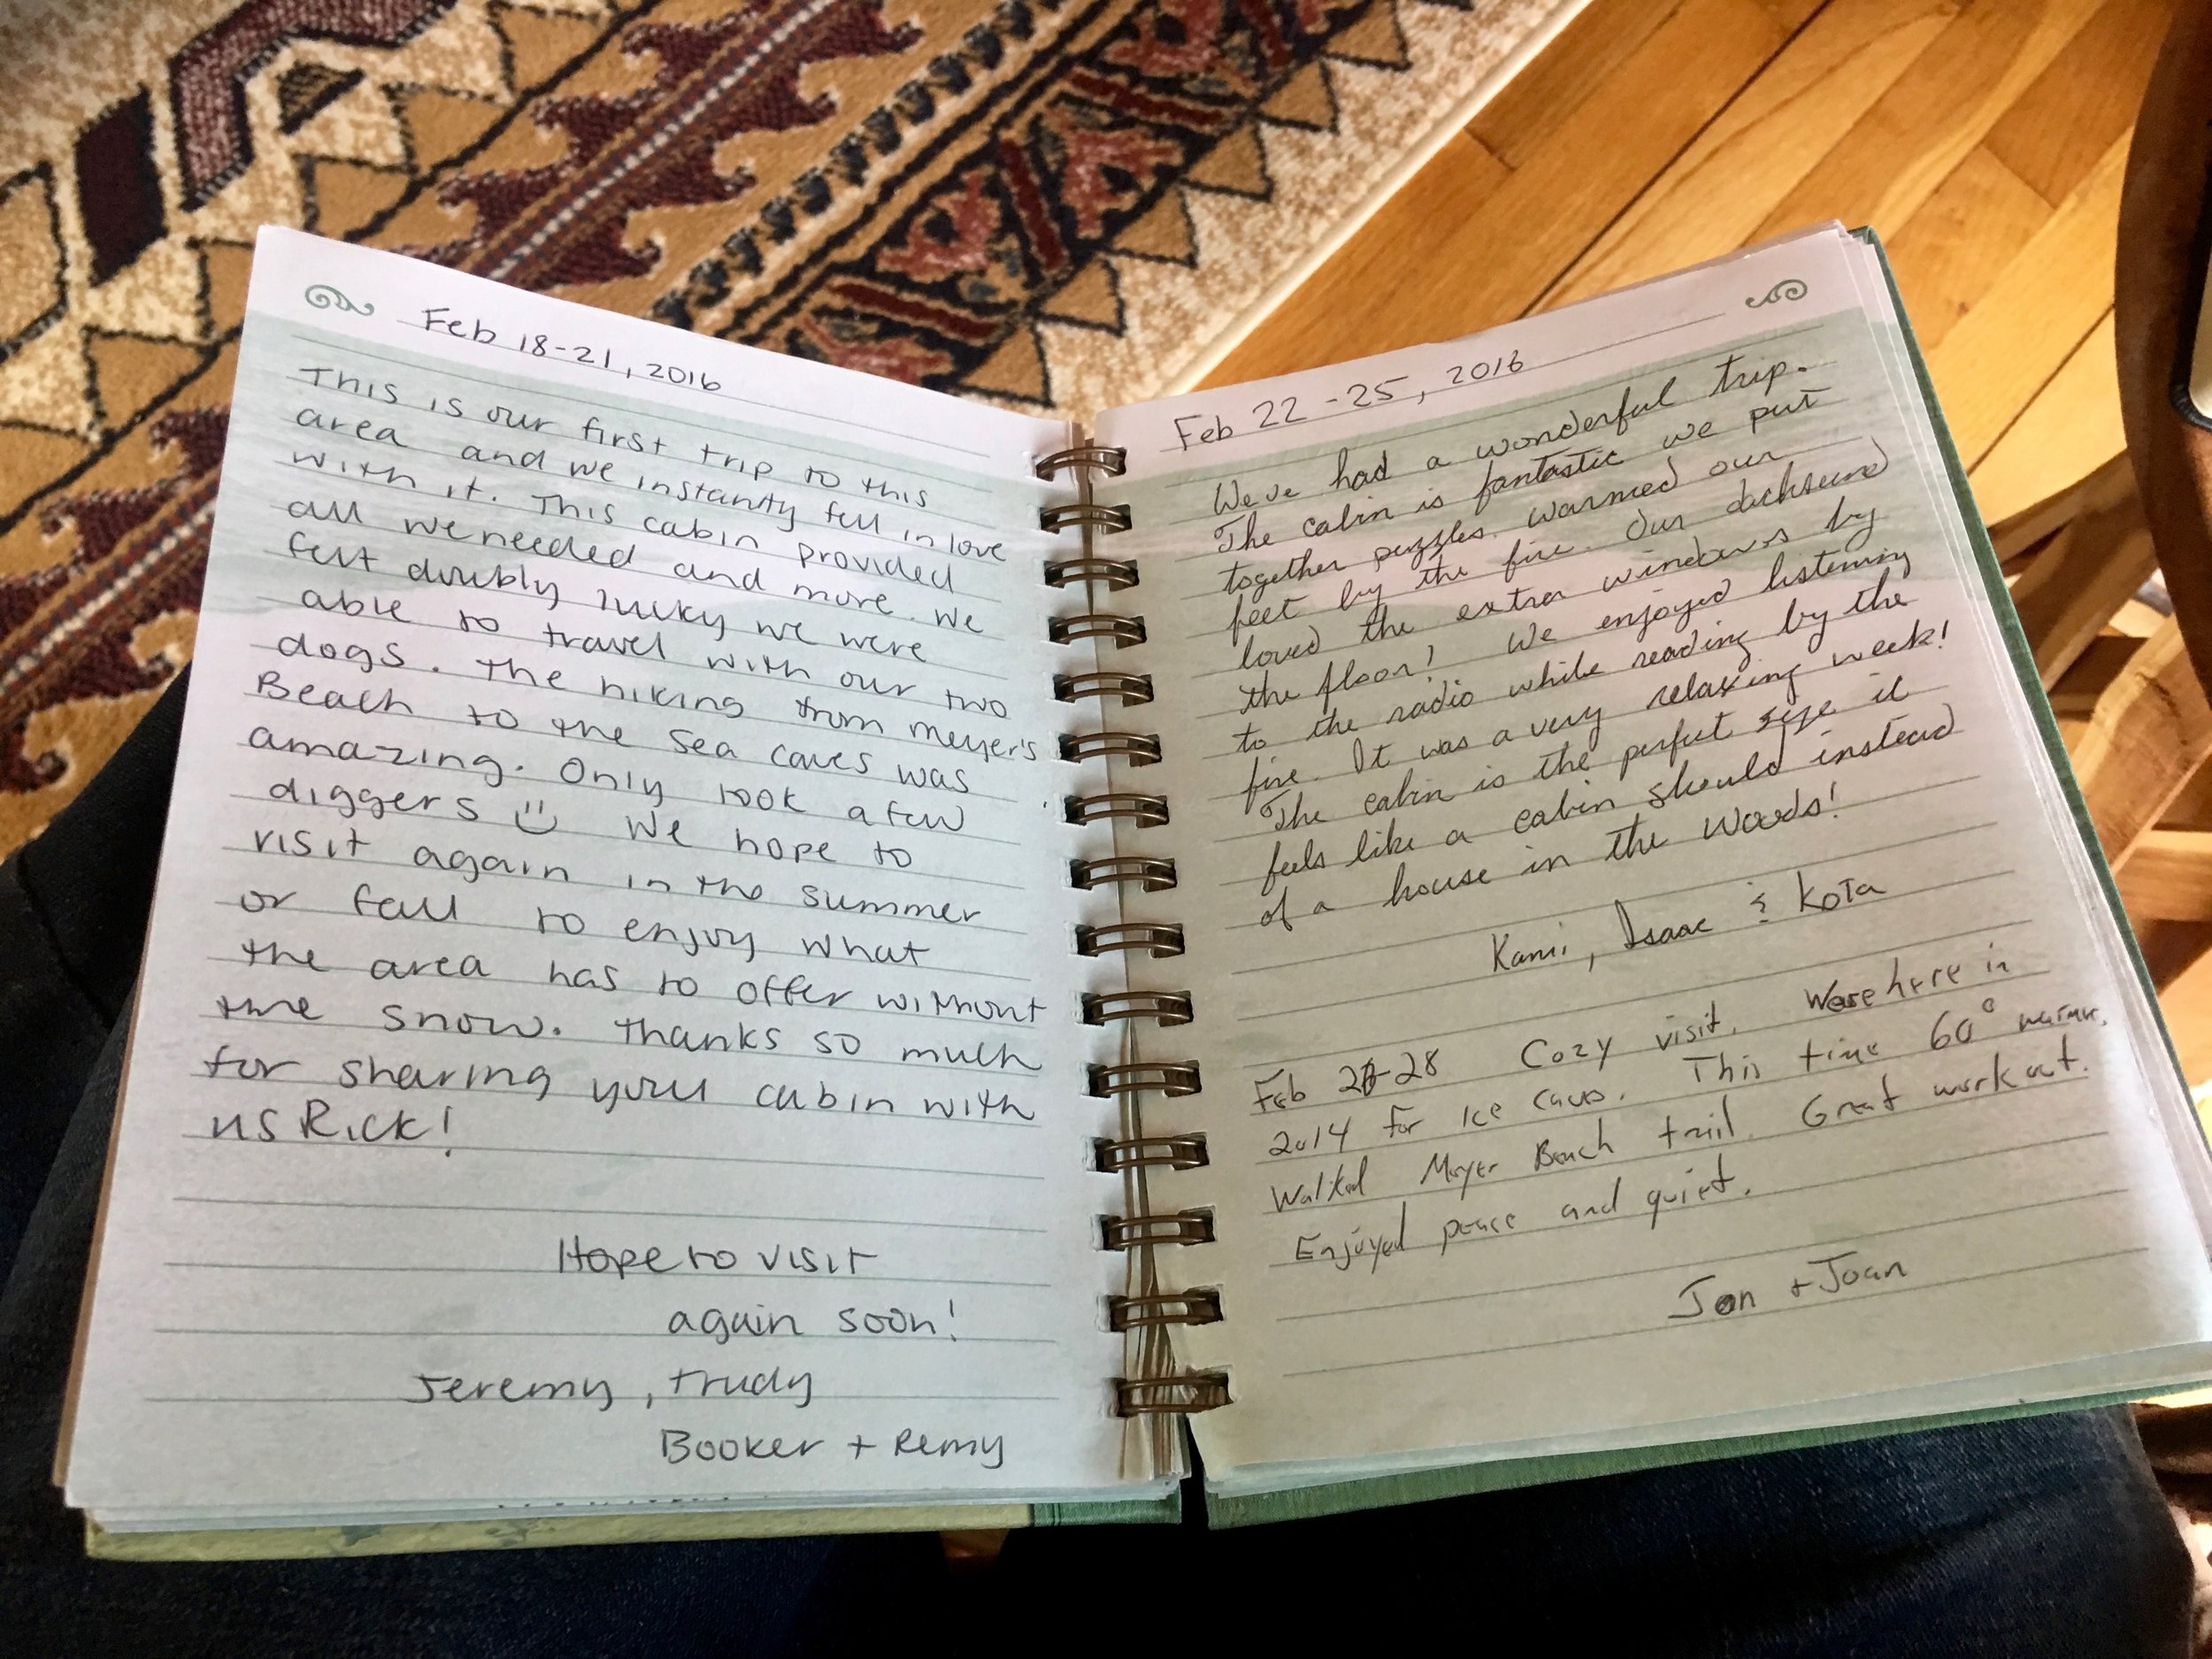 Feb 18-21, 2016
This is our first trip to this
area and we instantly fell in love
with it. This cabin provided
all we needed and more. We
felt doubly lucky we were
able to travel with our two
dogs. The hiking from Meyer's
Beach to the sea caves was
amazing. Only took a few
diggers We hope to
visit again in the summer
or fall to enjoy what
the area has to offer without
the snow. Thanks so much
for sharing your cabin with
us Rick!
Hope to visit
again soon!
Jeremy, Trudy
Booker + Remy
Feb 22-25, 2016
We've had a wonderful trip.
The cabin is fantastic we put
together puzzles. warmed our
feet by the fire. Our dachsund
loved the extra windows by
the floor! We enjoyed listening
to the radio while reading by the
fire. It was a very relaxing week!
The cabin is the perfect size it
feels like a cabin should instead
of a house in the woods!
Kami, Isaac & Kota
Feb 26-28 Cozy visit. Were here in
2014 for Ice caves. This time 60° warmer.
Walked Meyer Beach trail. Great workout.
Enjoyed peace and quiet.
Jon + Joan